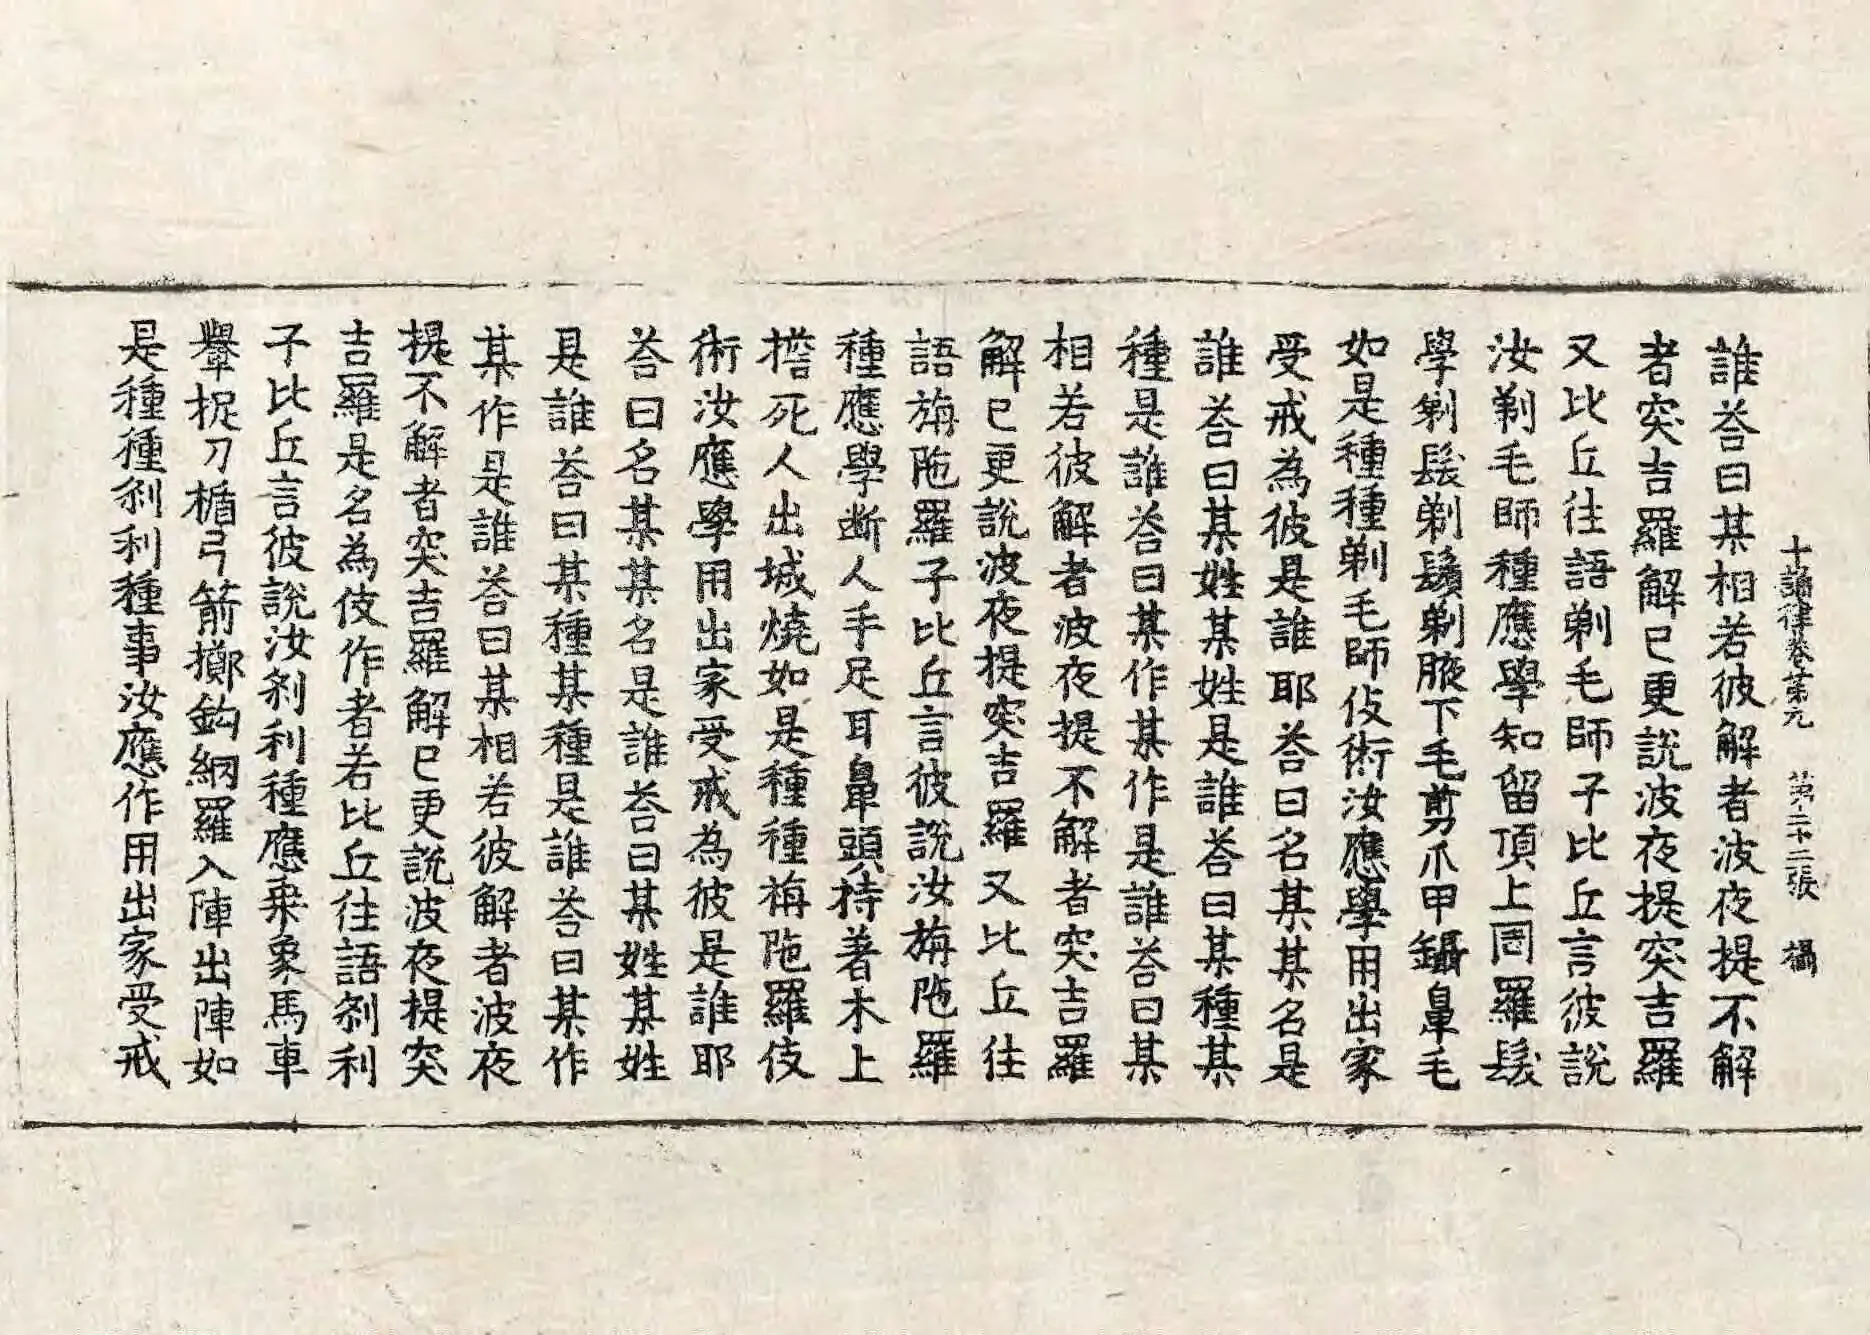 十誦律卷第九 第二十二張 攝
誰荅曰某相若彼解者波夜提不解
者突吉羅解已更說波夜提突吉羅
又比丘往語剃毛師子比丘言彼說
汝剃毛師種應學知留頂上周羅髮
學剃髮剃鬚剃腋下毛剪爪甲鑷鼻毛
如是種種剃毛師伎術汝應學用出家
受戒為彼是誰耶荅曰名某某名是
誰荅曰某姓某姓是誰荅曰某種某
種是誰荅曰某作某作是誰荅曰某
相若彼解者波夜提不解者突吉羅
解已更說波夜提突吉羅又比丘往
語旃陁羅子比丘言彼說汝旃陁羅
種應學斷人手足耳鼻頭持著木上
擔死人出城燒如是種種旃陁羅伎
術汝應學用出家受戒為彼是誰耶
荅曰名某某名是誰荅曰某姓某姓
是誰荅曰某種某種是誰荅曰某作
某作是誰荅曰某相若彼解者波夜
提不解者突吉羅解已更說波夜提突
吉羅是名為伎作者若比丘往語剎利
子比丘言彼說汝剎利種應乘象馬車
轝捉刀楯弓箭擲鈎網羅入陣出陣如
是種種剎利種事汝應作用出家受戒